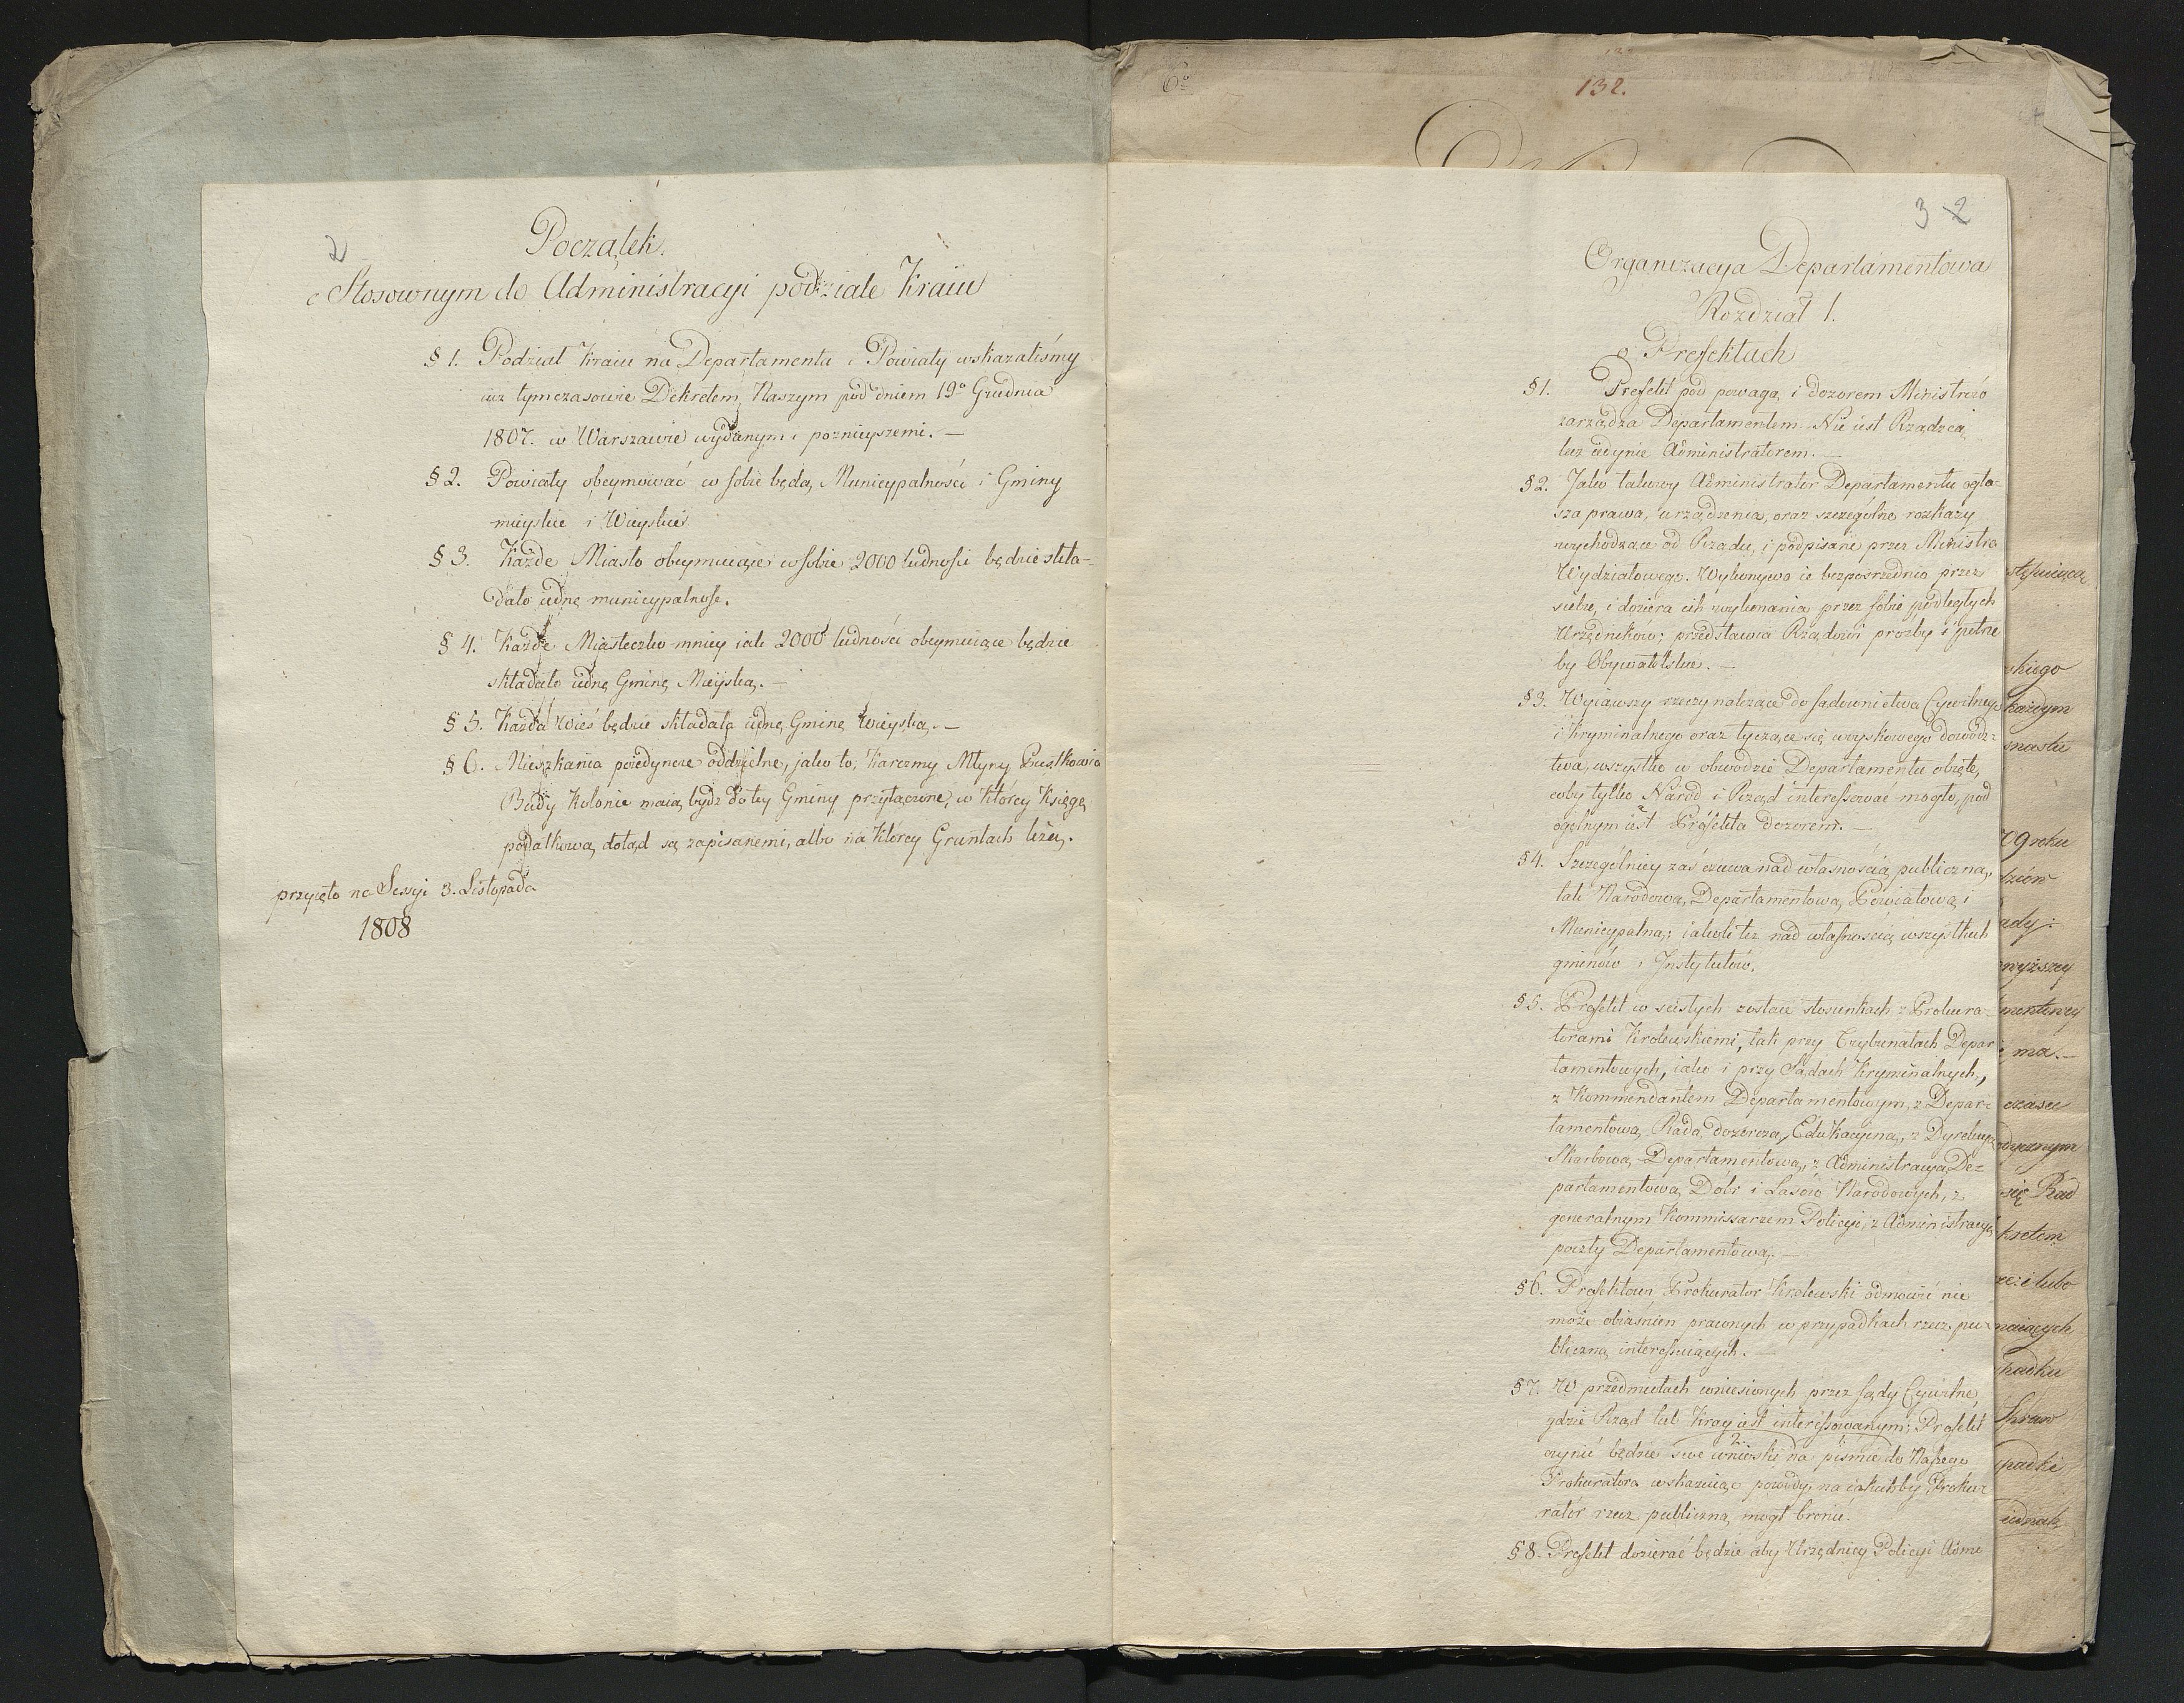 2
Początek.
o Stosownym do Administracyi podziale Kraiu
§ 1. Podział Kraiu na Departamenta i Powiaty wskazaliśmy
iuz tymczasowie Dekretem Naszym pod dniem 19º Grudnia
1807. w Warszawie wydanym i poznieyszemi. —
§ 2. Powiaty obeymować w sobie będą, Municypalności i Gminy
mieyskie i Wieyskie
§ 3. Każde Miasto obeymuiące w sobie 2000 ludności będzie skła-
dało iednę municypalność.
§ 4. Każde Miasteczko mniey iak 2000 ludności obeymuiące będzie
składało iednę Gminę Mieyską. —
§ 5. Każda Wieś będzie składała iednę Gminę Wieyską. —
§ 6. Mieszkania poiedyncze oddzielne, jako to, Karczmy Młyny Pustkowia
Budy Kolonie maią bydź do tey Gminy przyłączone, w którey Księgę
podatkową dotąd są zapisanemi, albo na którey Gruntach leżą.
przyięto na Sessyi 3. Listopada
1808
6º
132.
3 2
Organizacya Departamentowa
Rozdział 1.
o Prefektach
§ 1. Prefekt pod powagą i dozorem Ministrów
zarządza Departamentem. Nie iest Rządzcą,
lecz iedynie Administratorem. —
§ 2. Jako takowy Administrator Departamentu ogła-
sza prawa, urządzenia, oraz szczególne rozkazy
wychodzące od Rządu, i podpisane przez Ministra
Wydziałowego. Wykonywa ie bezpośrednio przez
siebie, i doziera ich wykonania przez sobie podległych
Urzędników; przedstawia Rządowi prozby i potrze
by Obywatelskie. —
§ 3. Wyiąwszy rzeczy należące do sądownictwa Cywilnego
i Kryminalnego oraz tyczące się woyskowego dowodz-
twa, wszystko w obwodzie Departamentu obięte,
coby tylko Naród i Rząd interessować mogło, pod
ogólnym iest Prefekta dozorem. —
§ 4. Szczególniey zaś czuwa nad własnością publiczną,
tak Narodową, Departamentową, Powiatową i
Municypalną; iako też nad własnością wszystkich
gminów i Instytutów.
§ 5. Prefekt w scisłych zostaie stosunkach z Prokura-
torami Krolewskiemi, tak przy Trybunałach Depar
tamentowych, iako i przy Sądach Kryminalnych,
z Kommendantem Departamentowym, z Depar-
tamentową Radą dozorczą, Edukacyiną, z Dyrekcyą
Skarbową Departamentową, z Administracyą De-
partamentową Dóbr i Lasów Narodowych, z
generalnym Kommissarzem Policyi, z Administracyą
poczty Departamentową. —
§ 6. Prefektowi Prokurator Krolewski odmowić nie
może obiaśnien prawnych w przypadkach rzecz pu-
bliczną interessuiących. —
§ 7. W przedmiotach wniesionych przez sądy Cywilne,
gdzie Rząd lub Kray iest interessowanym; Prefekt
czynić będzie swe wnioski na pismie do Naszego
Prokuratora wskazuiąc powody, na iakichby Proku-
rator rzecz publiczną mogł bronić.
§ 8. Prefekt dozierać będzie aby Urzędnicy Policyi Admi
skiego
każdym
09 roku
ma. —
czasu
się Rad
padku
Spraw
iednak